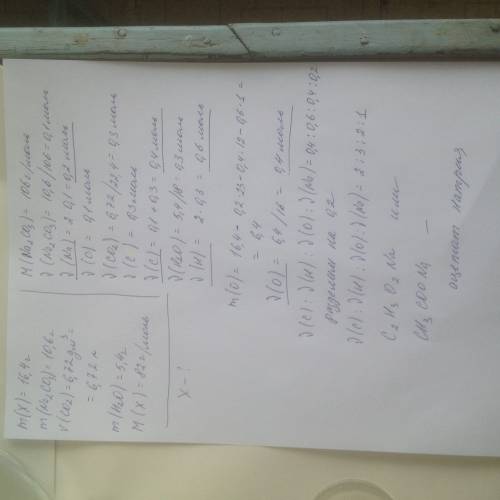 m(X) = 16,4 г
m(Na₂CO₃) = 10,6 г
V(CO₂) = 6,72 дм³
= 6,72 л
m(H₂O) = 5,4 г
M(X) = 82 г/моль
X - ?
M(Na₂CO₃) = 106 г/моль
ν(Na₂CO₃) = 10,6/106 = 0,1 моль
ν(Na) = 2·0,1 = 0,2 моль
ν(C) = 0,1 моль
ν(CO₂) = 6,72/22,4 = 0,3 моль
ν(C) = 0,3 моль
ν(C) = 0,1 + 0,3 = 0,4 моль
ν(H₂O) = 5,4/18 = 0,3 моль
ν(H) = 2·0,3 = 0,6 моль
m(O) = 16,4 - 0,2·23 - 0,4·12 - 0,6·1 =
= 6,4
ν(O) = 6,4/16 = 0,4 моль
ν(C) : ν(H) : ν(O) : ν(Na) = 0,4 : 0,6 : 0,4 : 0,2
разделим на 0,2
ν(C) : ν(H) : ν(O) : ν(Na) = 2 : 3 : 2 : 1
C₂H₃O₂Na или
CH₃COONa —
ацетат натрия